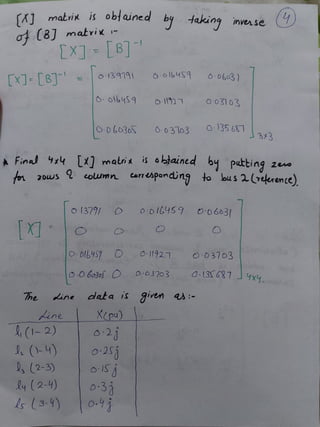 [X] matrix is obtained by taking inverse
4
of [B] matrix :-
[X] = [B]⁻¹
[X] = [B]⁻¹ = [ 0.139791 0.016459 0.06031
0.016459 0.11927 0.03703
0.060305 0.03703 0.135687 ] 3x3
* Final 4x4 [X] matrix is obtained by putting zero
for rows & column corresponding to bus 2 (reference).
[X] = [ 0.13791 0 0.016459 0.06031
0 0 0 0
0.016459 0 0.11927 0.03703
0.060305 0 0.03703 0.135687 ] 4x4.
The line data is given as :-
Line X(pu)
l₁ (1-2) 0.2j
l₂ (1-4) 0.25j
l₃ (2-3) 0.15j
l₄ (2-4) 0.3j
l₅ (3-4) 0.4j